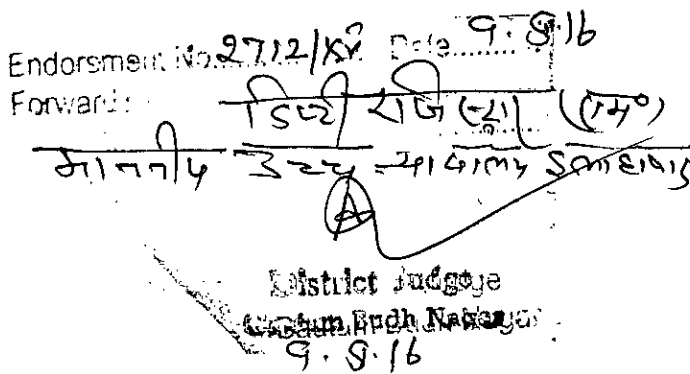 Endorsment No. 2712/XV Date 9.8.16
Forward:
डिप्टी रजिस्ट्रार (एम०)
माननीय उच्च न्यायालय इलाहाबाद
District Judge
Gautam Budh Nagar
9.8.16